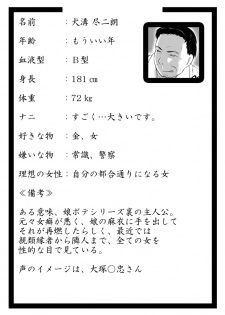 名前　　：犬溝 尽二朗
年齢　　：もういい年
血液型　：Ｂ型
身長　　：181㎝
体重　　：72㎏
ナニ　　：すごく…大きいです。
好きな物：金、女
嫌いな物：常識、警察
理想の女性：自分の都合通りになる女
≪備考≫
ある意味、娘ボテシリーズ裏の主人公。
元々女癖が悪く、娘の麻衣に手を出して
それが再燃したらしく、最近では
親類縁者から隣人まで、全ての女を
性的な目で見ている。
声のイメージは、大塚○忠さん